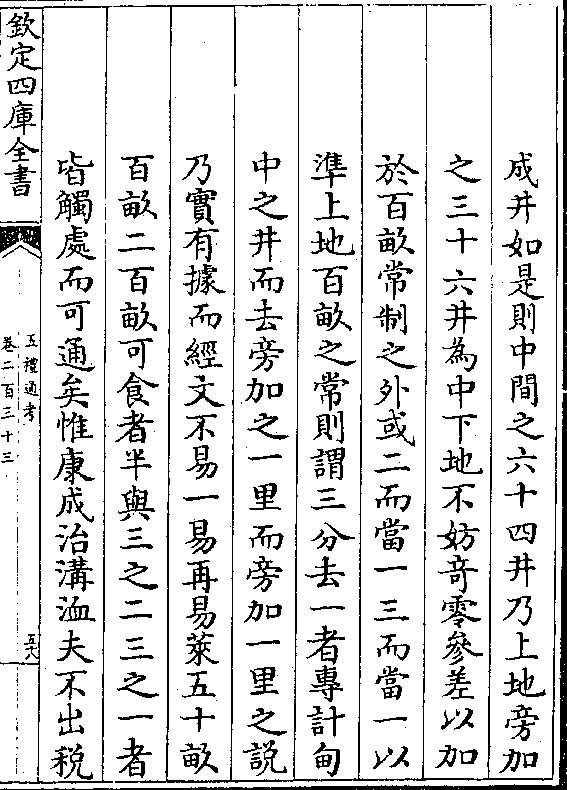 成井如是則中間之六十四井乃上地旁加
之三十六井為中下地不妨奇零參差以加
於百畝常制之外或二而當一三而當一以
準上地百畝之常則謂三分去一者專計甸
中之井而去旁加之一里而旁加一里之說
乃實有據而經文不易一易再易萊五十畝
百畝二百畝可食者半與三之二三之一者
皆觸處而可通矣惟康成治溝洫夫不出稅
欽定四庫全書
五禮通考
卷二百三十三
五六